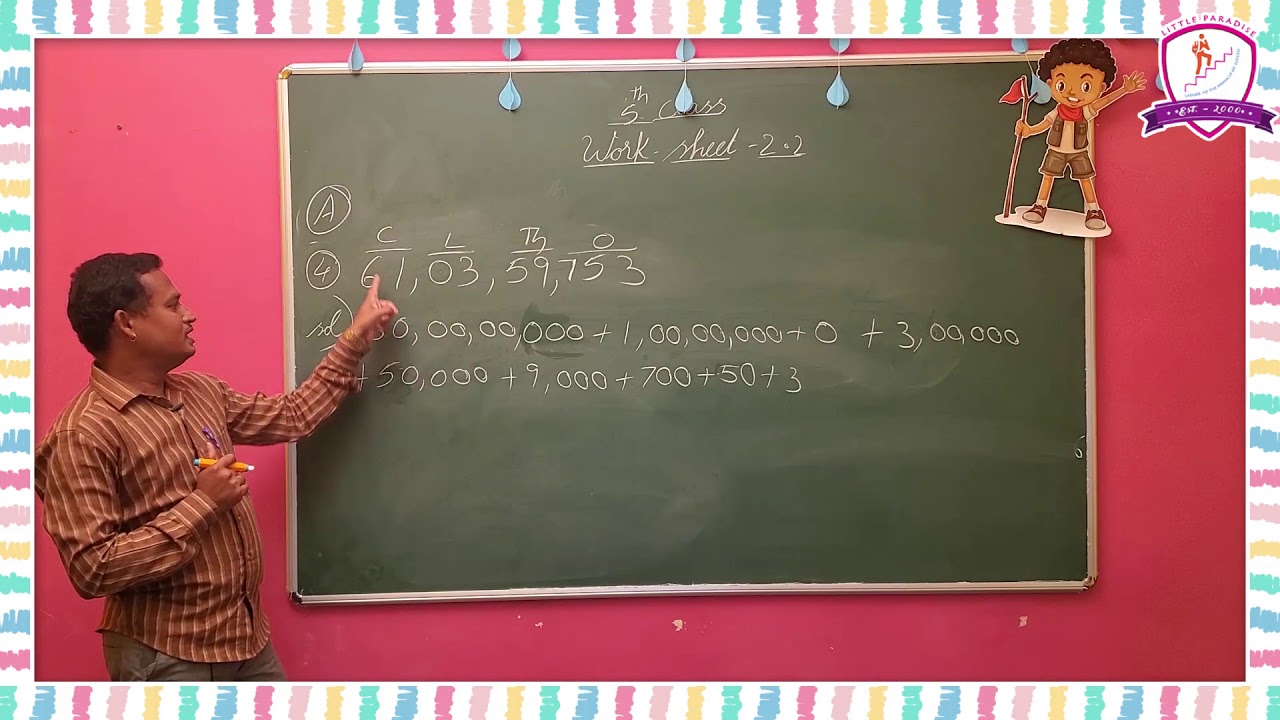 LITTLE PARADISE
Est. - 2000
5th Class
Work-sheet-2.2
A
C L Th O
4 61,03,59,753
sol) 60,00,00,000+1,00,00,000+0 +3,00,000
+50,000+9,000+700+50+3